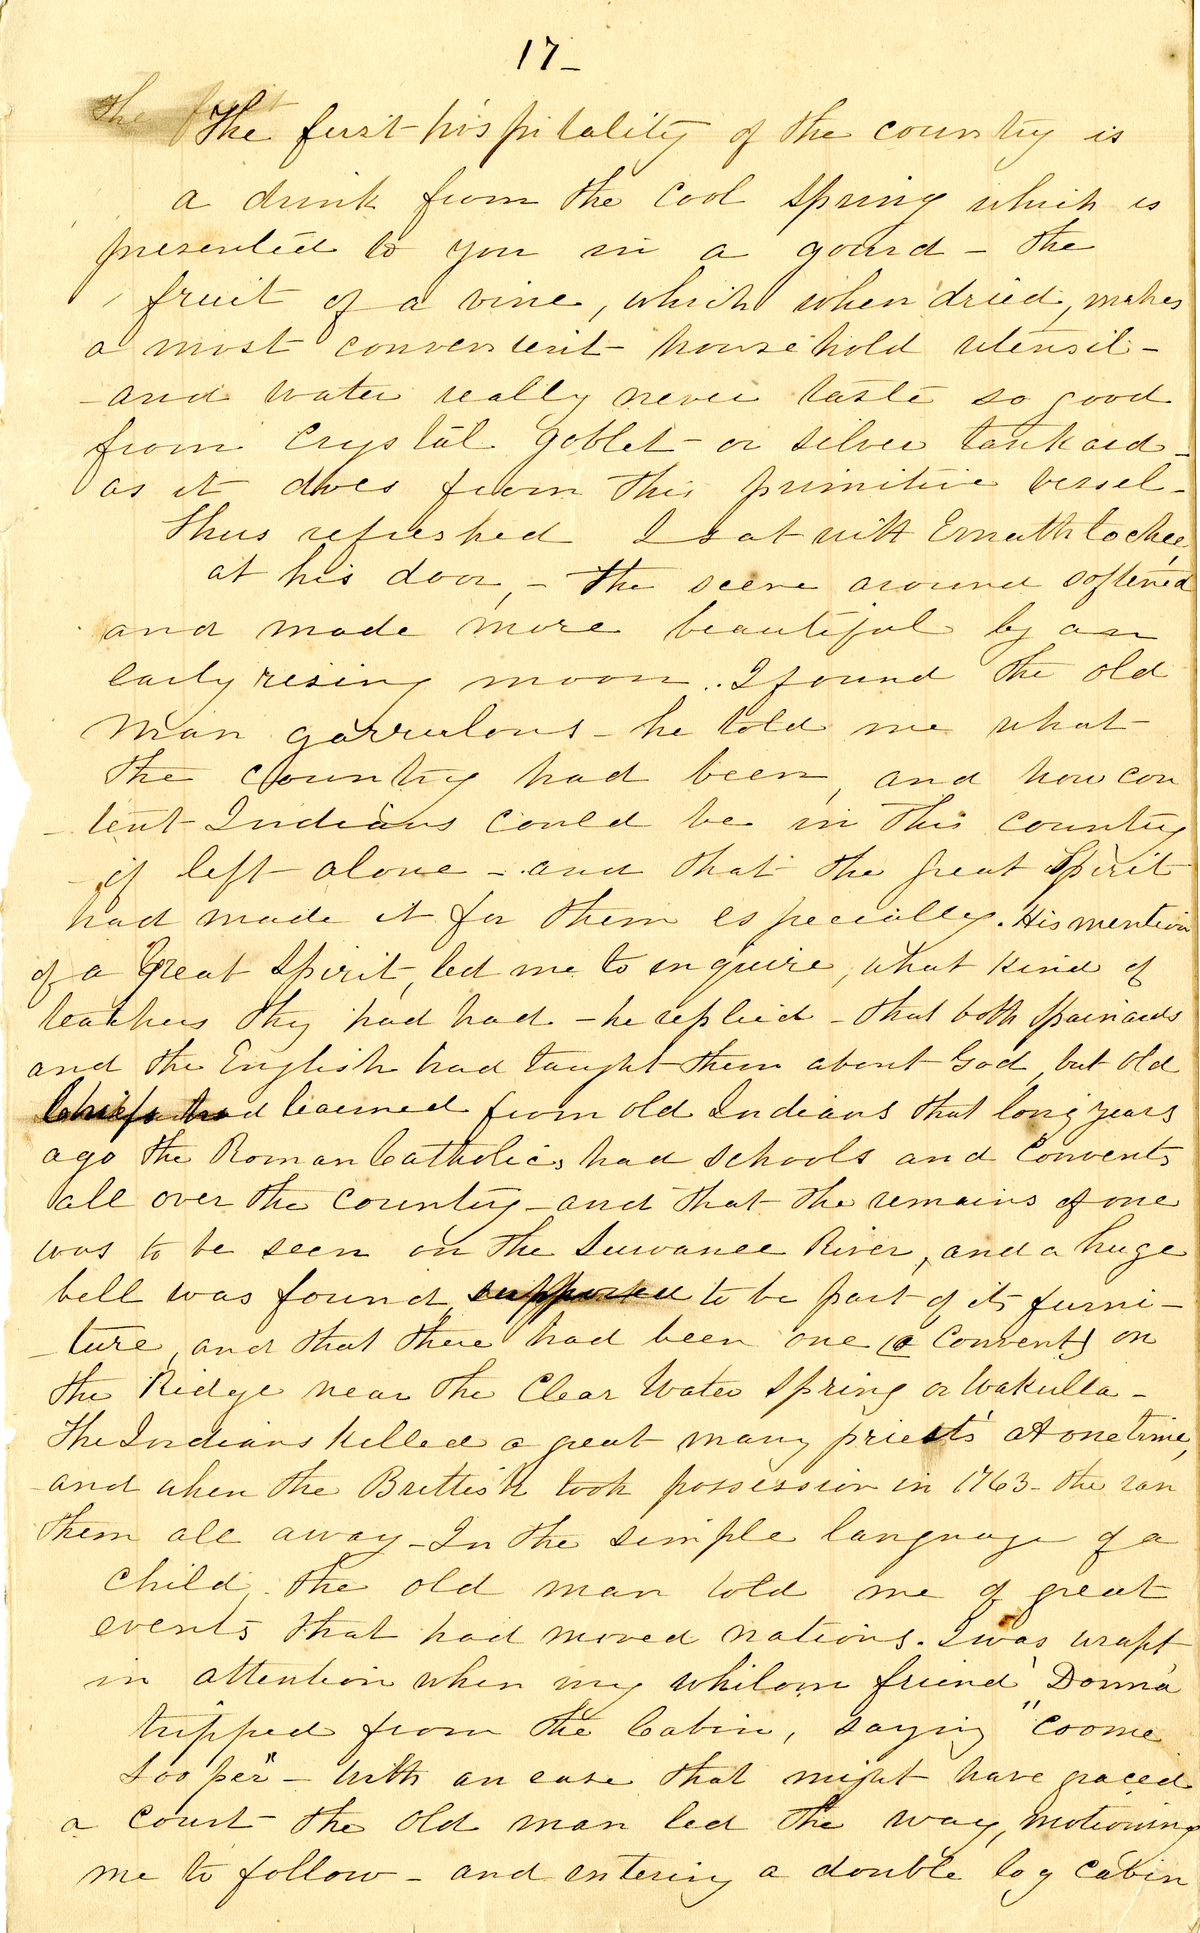 17_
The first hospitality of the country is
a drink from the cool spring which is
presented to you in a gourd - the
fruit of a vine, which when dried, makes
a most convenient household utensil -
- and water really never taste so good
from Crystal goblet - or silver tankard -
as it does from this primitive vessel -
Thus refreshed I sat with Emathlochee,
at his door, - The scene around softened
and made more beautiful by an
early rising moon.. I found the old
man garrulous - he told me what
the country had been, and how con
- tent Indians could be in this country
- if left alone - and that the great Spirit
had made it for them especially. His mention
of a Great Spirit, led me to inquire, what kind of
teachers they had had - he replied - that both Spainards
and the English had taught them about God, but old
Chiefs had learned from old Indians that long years
ago the Roman Catholics had schools and Convents
all over the country - and that the remains of one
was to be seen on the Suwanee River, and a huge
bell was found, supposed to be part of its furni -
- ture, and that there had been one (a Convent) on
the Ridge near the Clear Water Spring or Wakulla -
The Indians killed a great many priests at one time,
and when the Brittish took possession in 1763 - the ran
them all away - In the simple language of a
child, the old man told me of great
events that had moved nations. I was wrapt
in attention when my whilom friend Donna
tripped from the Cabin, saying "coome
sooper" - With an ease that might have graced
a court - the old man led the way, motioning
me to follow - and entering a double log cabin